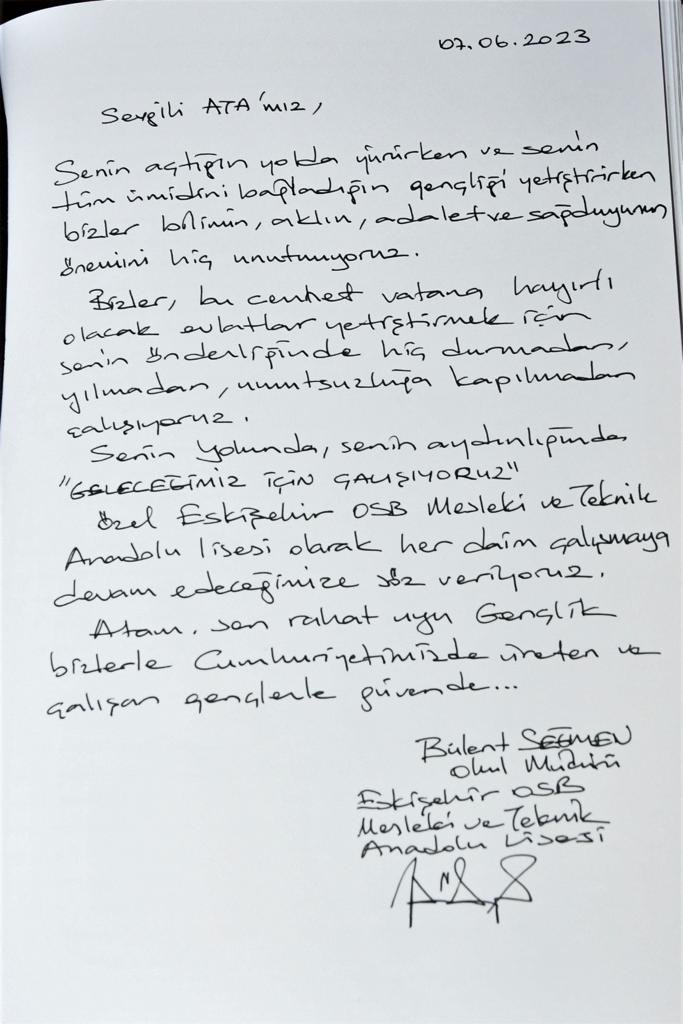 07.06.2023
Sevgili ATA'mız,
Senin açtığın yolda yürürken ve senin
tüm ümidini bağladığın gençliği yetiştirirken
bizler bilimin, aklın, adalet ve sağduyunun
önemini hiç unutmuyoruz.
Bizler, bu cennet vatana hayırlı
olacak evlatlar yetiştirmek için
senin önderliğinde hiç durmadan,
yılmadan, umutsuzluğa kapılmadan
çalışıyoruz.
Senin yolunda, senin aydınlığında
"GELECEĞİMİZ İÇİN ÇALIŞIYORUZ"
Özel Eskişehir OSB Mesleki ve Teknik
Anadolu lisesi olarak her daim çalışmaya
devam edeceğimize söz veriyoruz.
Atam, sen rahat uyu Gençlik
bizlerle Cumhuriyetimizde üreten ve
çalışan gençlerle güvende...
Bülent SEĞMEN
Okul Müdürü
Eskişehir OSB
Mesleki ve Teknik
Anadolu Lisesi